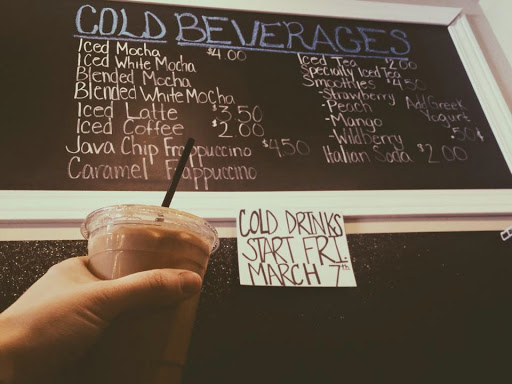 COLD BEVERAGES
Iced Mocha $4.00
Iced White Mocha
Blended Mocha
Blended White Mocha
Iced Latte $3.50
Iced Coffee $2.00
Java Chip Frappuccino $4.50
Caramel Frappuccino
Iced Tea $2.00
Specialty Iced Tea
Smoothies $4.50
-Strawberry
-Peach
-Mango
-Wildberry
Add Greek
Yogurt
.50¢
Italian Soda $2.00
COLD DRINKS
START FRI.
MARCH 7th